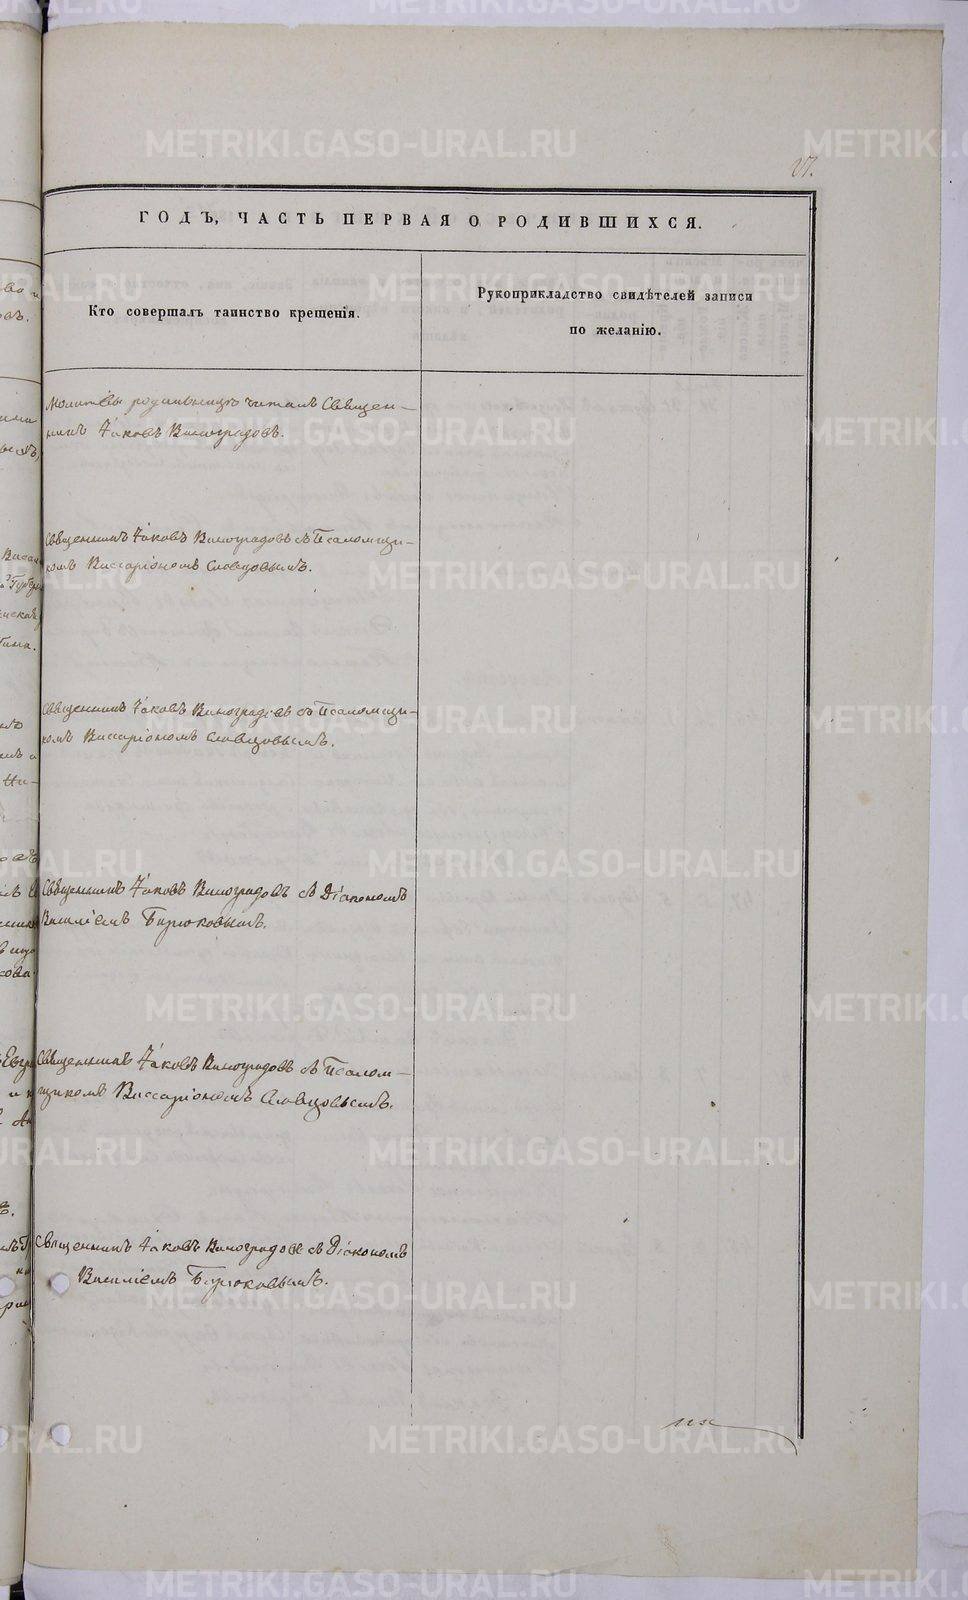 METRIKI.GASO-URAL.RU
17.
ГОДЪ, ЧАСТЬ ПЕРВАЯ О РОДИВШИХСЯ.
Кто совершалъ таинство крещенія.
Рукоприкладство свидѣтелей записи
по желанію.
Молитвы родильницѣ читалъ Священ-
никъ Іаковъ Виноградовъ.
Священникъ Іаковъ Виноградовъ съ Псаломщи-
комъ Виссаріономъ Словцовымъ.
Священникъ Іаковъ Виноградовъ съ Псаломщи-
комъ Виссаріономъ Словцовымъ.
Священникъ Іаковъ Виноградовъ съ Діакономъ
Василіемъ Бирюковымъ.
Священникъ Іаковъ Виноградовъ съ Псалом-
щикомъ Виссаріономъ Словцовымъ.
Священникъ Іаковъ Виноградовъ съ Діакономъ
Василіемъ Бирюковымъ.